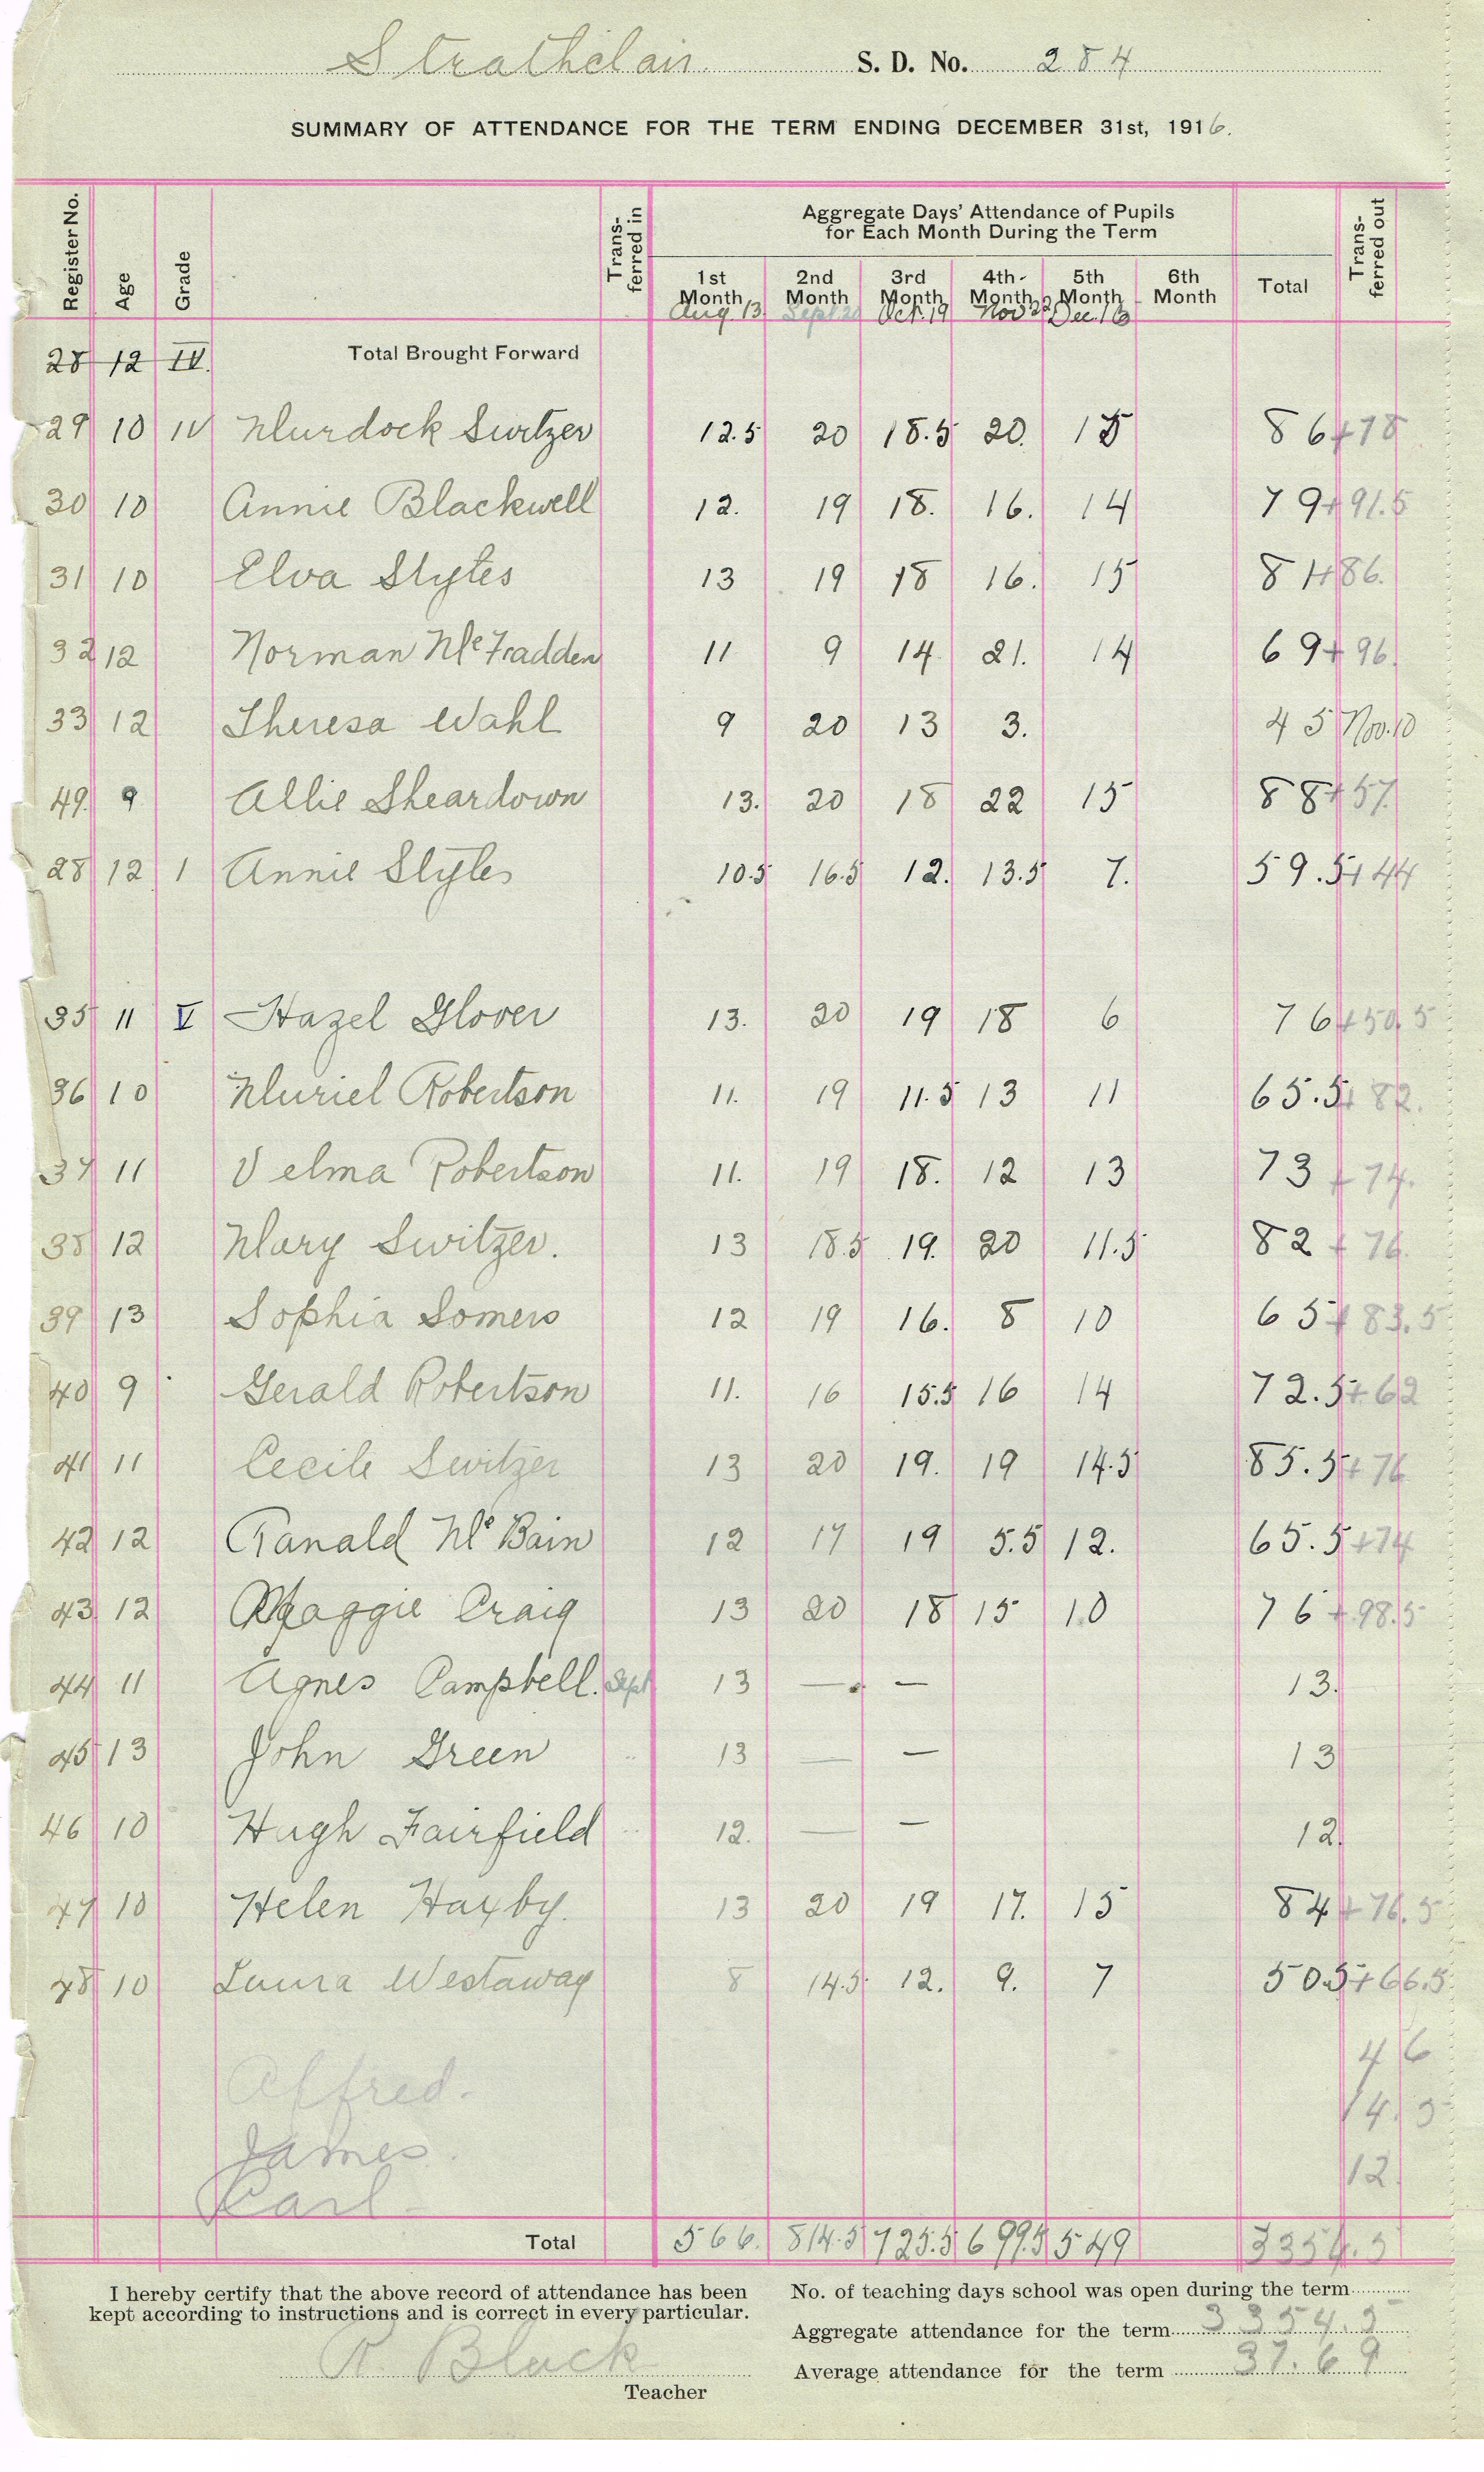 Strathclair S. D. No. 284
SUMMARY OF ATTENDANCE FOR THE TERM ENDING DECEMBER 31st, 1916.
Register No. Age Grade Trans-ferred in Aggregate Days' Attendance of Pupils for Each Month During the Term Total Trans-ferred out
1st Month 2nd Month 3rd Month 4th Month 5th Month 6th Month
Aug. 13 Sept 20 Oct. 19 Nov 22 Dec. 16
28 12 IV. Total Brought Forward
29 10 IV Murdock Switzer 12.5 20 18.5 20. 15 86 +78
30 10 Annie Blackwell 12. 19 18. 16. 14 79 +91.5
31 10 Elva Slytes 13 19 18 16. 15 81 +86.
32 12 Norman McFadden 11 9 14 21. 14 69 +96.
33 12 Theresa Wahl 9 20 13 3. 45 Nov.10
49. 9 Allie Sheardown 13. 20 18 22 15 88 +57.
28 12 1 Annie Slytes 10.5 16.5 12. 13.5 7. 59.5 +44
35 11 V Hazel Glover 13. 20 19 18 6 76 +50.5
36 10 Muriel Robertson 11. 19 11.5 13 11 65.5 +82.
37 11 Velma Robertson 11. 19 18. 12 13 73 +74.
38 12 Mary Switzer. 13 18.5 19. 20 11.5 82 +76.
39 13 Sophia Somers 12 19 16. 8 10 65 +83.5
40 9 Gerald Robertson 11. 16 15.5 16 14 72.5 +62
41 11 Cecile Switzer 13 20 19. 19 14.5 85.5 +76
42 12 Ranald McBain 12 17 19 5.5 12. 65.5 +74
43. 12 Maggie Craig 13 20 18 15 10 76 +98.5
44 11 Agnes Campbell. Sept 13 — — 13.
45 13 John Green " 13 — — 13
46 10 Hugh Fairfield " 12. — — 12.
47 10 Helen Haxby. 13 20 19 17. 15 84 +76.5
48 10 Laura Westaway 8 14.5 12. 9. 7 50.5 +66.5
46
Alfred. 14.5
James. 12.
Carl
Total 566. 814.5 725.5 699.5 549 3354.5
I hereby certify that the above record of attendance has been No. of teaching days school was open during the term
kept according to instructions and is correct in every particular. Aggregate attendance for the term 3354.5
R. Black Average attendance for the term 37.69
Teacher